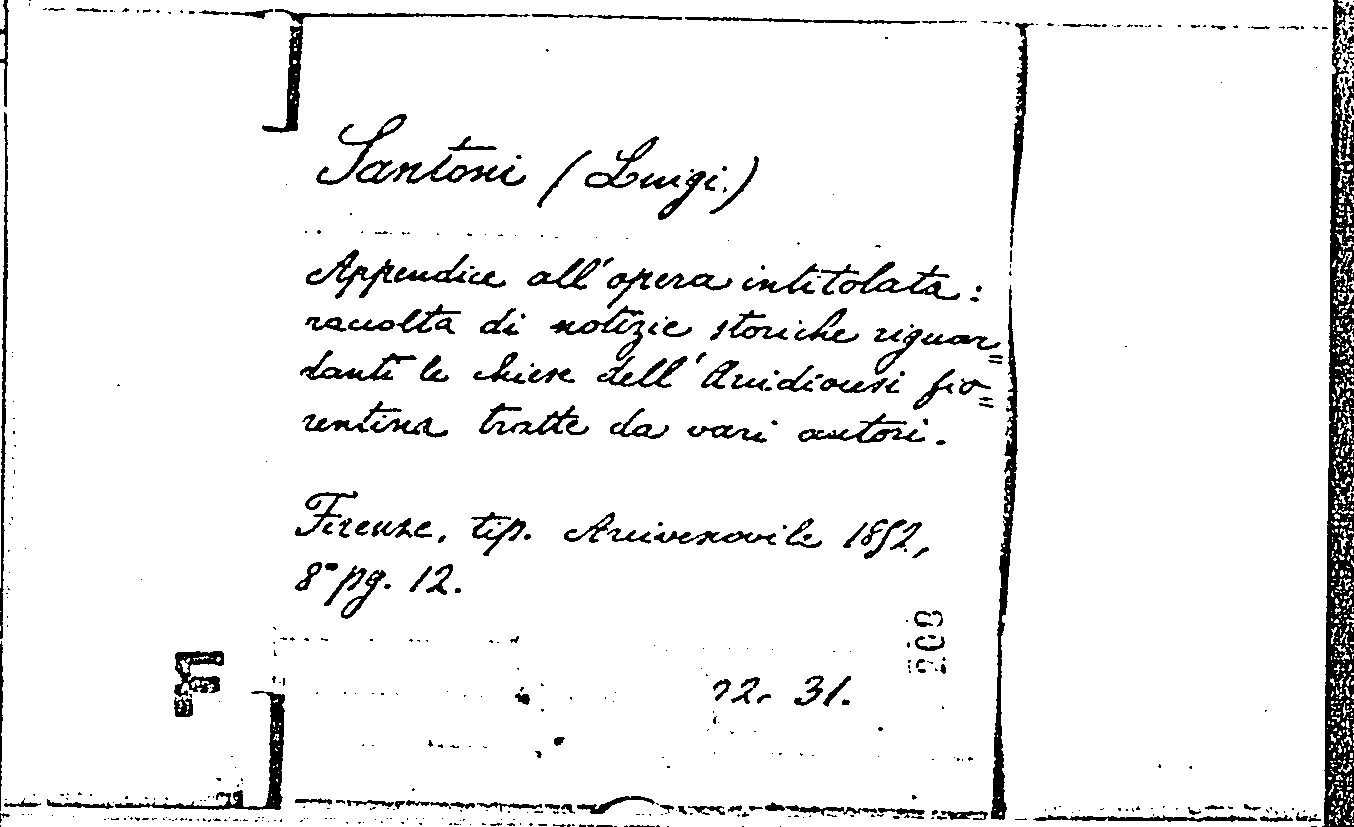 Santoni (Luigi.)
Appendice all'opera intitolata:
raccolta di notizie storiche riguar=
danti le chiese dell'Arcidiocesi fio=
rentina tratte da vari autori.
Firenze, tip. Arcivescovile 1852,
8° pg. 12.
208
31.